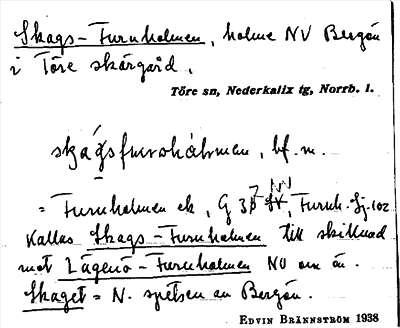 Skags-Furuholmen, holme NV Bergön
i Töre skärgård.
Töre sn, Nederkalix tg, Norrb. l.
bf. m.
= Furuholmen ek, G
Kallas Skags-Furuholmen till skillnad
mot Lägenö-Furuholmen NV om ön.
Skaget = N. spetsen av Bergön.
EDVIN BRÄNNSTRÖM 1938